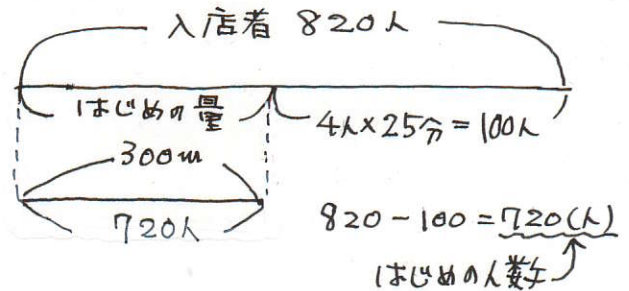 入店者 820人
はじめの量
4人×25分=100人
300m
720人
820-100=720(人)
はじめの人数